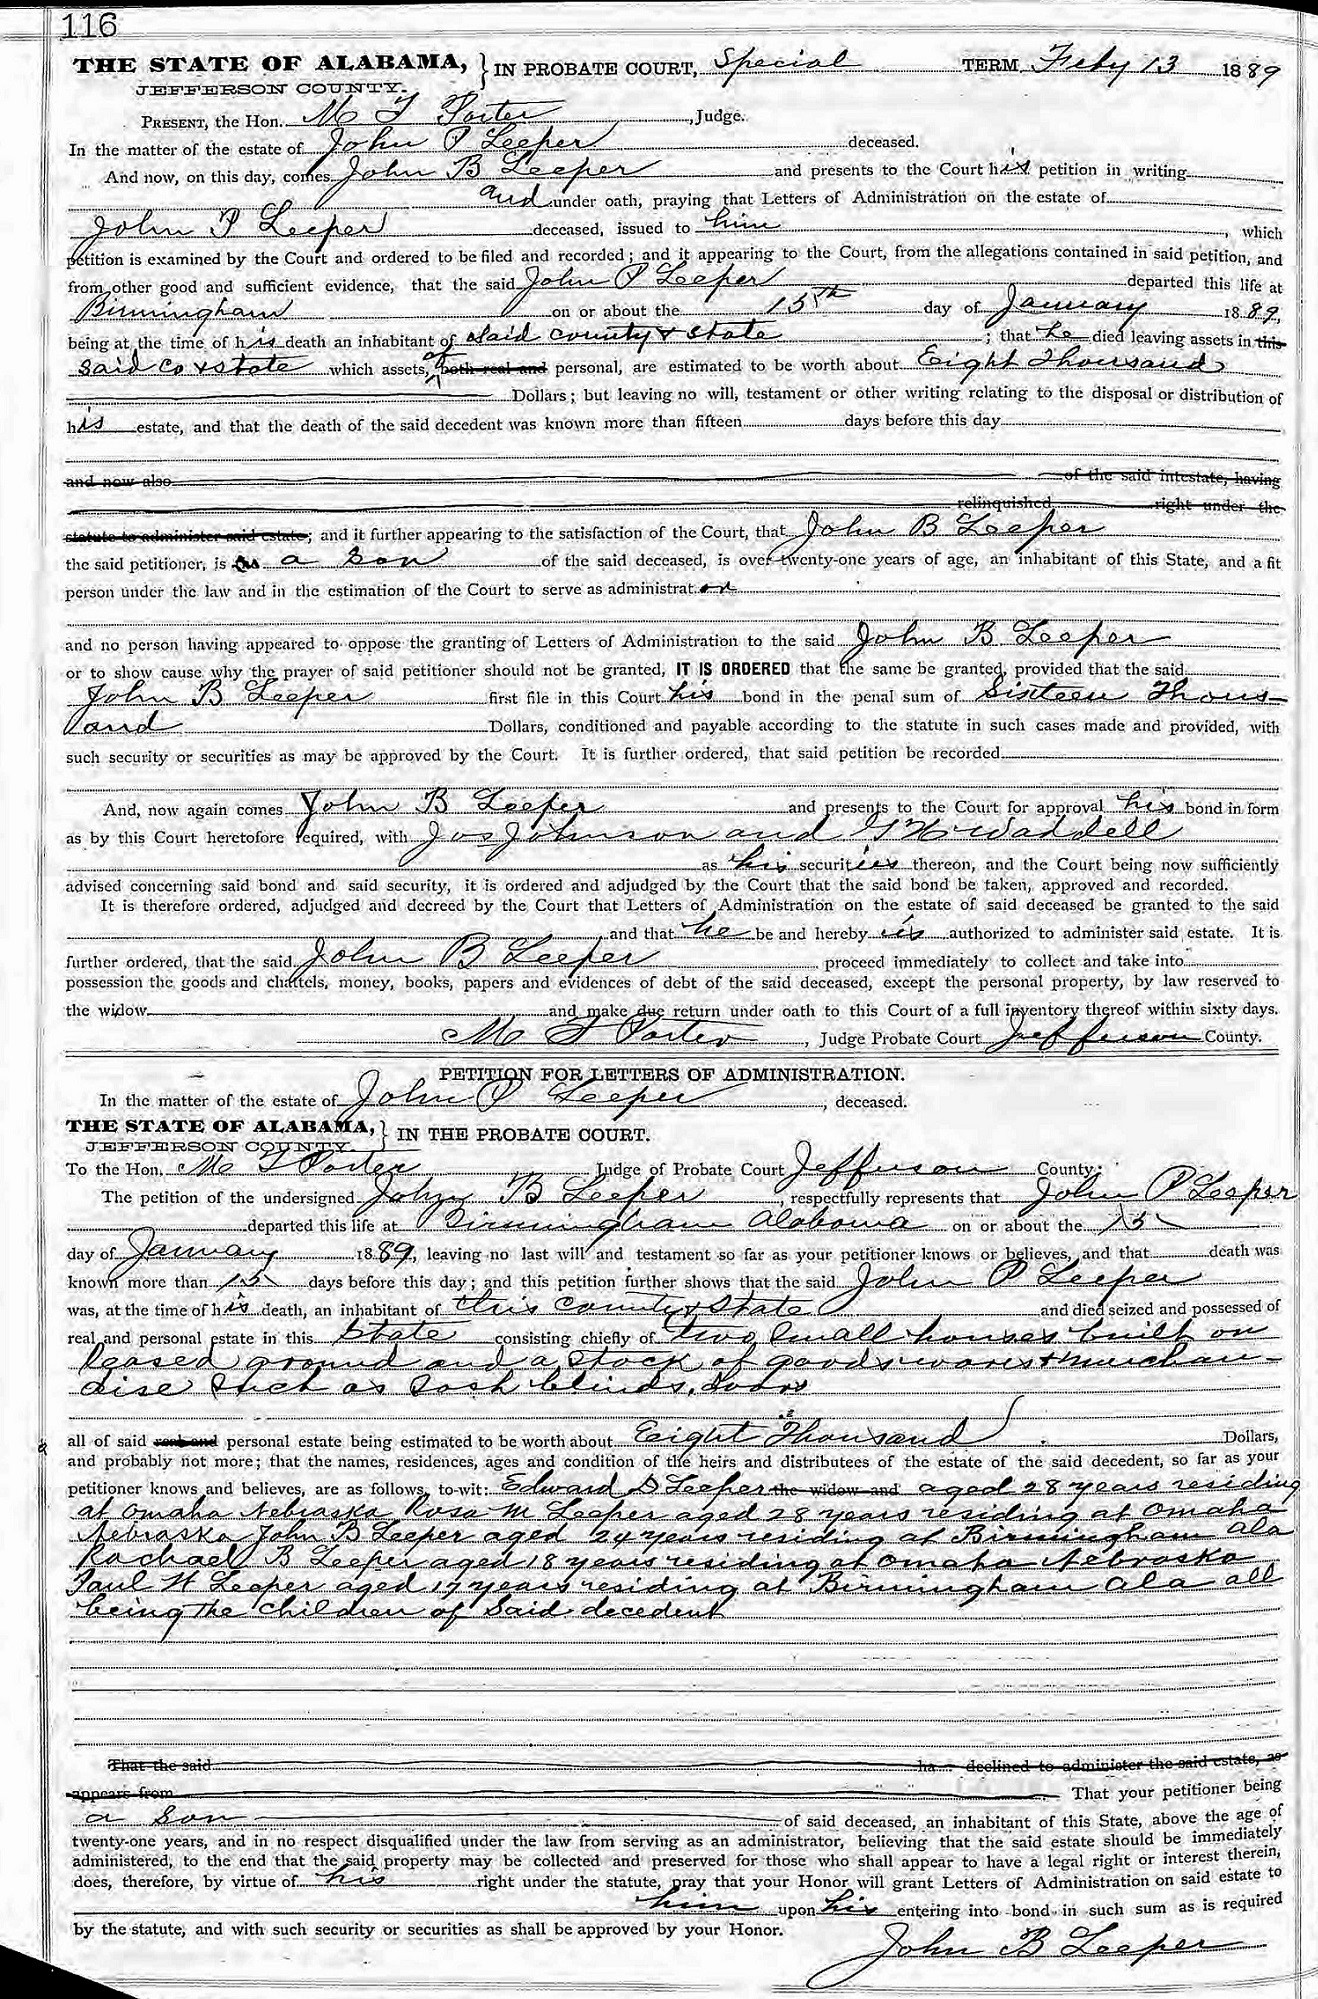 116
THE STATE OF ALABAMA, } IN PROBATE COURT, Special TERM Feby 13 1889
JEFFERSON COUNTY.
PRESENT, the Hon. M T Porter, Judge.
In the matter of the estate of John P Leeper deceased.
And now, on this day, comes John B Leeper and presents to the Court his petition in writing
and under oath, praying that Letters of Administration on the estate of
John P Leeper deceased, issued to him, which
petition is examined by the Court and ordered to be filed and recorded; and it appearing to the Court, from the allegations contained in said petition, and
from other good and sufficient evidence, that the said John P Leeper departed this life at
Birmingham on or about the 15th day of January 1889,
being at the time of his death an inhabitant of said county & state; that he died leaving assets in this
said co & state which assets, of both real and personal, are estimated to be worth about Eight Thousand
Dollars; but leaving no will, testament or other writing relating to the disposal or distribution of
his estate, and that the death of the said decedent was known more than fifteen days before this day
and now also of the said intestate, having
relinquished right under the
statute to administer said estate; and it further appearing to the satisfaction of the Court, that John B Leeper
the said petitioner, is a son of the said deceased, is over twenty-one years of age, an inhabitant of this State, and a fit
person under the law and in the estimation of the Court to serve as administrator
and no person having appeared to oppose the granting of Letters of Administration to the said John B Leeper
or to show cause why the prayer of said petitioner should not be granted, IT IS ORDERED that the same be granted, provided that the said
John B Leeper first file in this Court his bond in the penal sum of Sixteen Thous-
and Dollars, conditioned and payable according to the statute in such cases made and provided, with
such security or securities as may be approved by the Court. It is further ordered, that said petition be recorded
And, now again comes John B Leeper and presents to the Court for approval his bond in form
as by this Court heretofore required, with Jos Johnson and Waddell
as his securities thereon, and the Court being now sufficiently
advised concerning said bond and said security, it is ordered and adjudged by the Court that the said bond be taken, approved and recorded.
It is therefore ordered, adjudged and decreed by the Court that Letters of Administration on the estate of said deceased be granted to the said
and that he be and hereby is authorized to administer said estate. It is
further ordered, that the said John B Leeper proceed immediately to collect and take into
possession the goods and chattels, money, books, papers and evidences of debt of the said deceased, except the personal property, by law reserved to
the widow and make due return under oath to this Court of a full inventory thereof within sixty days.
M T Porter, Judge Probate Court Jefferson County.
PETITION FOR LETTERS OF ADMINISTRATION.
In the matter of the estate of John P Leeper, deceased.
THE STATE OF ALABAMA, } IN THE PROBATE COURT.
JEFFERSON COUNTY.
To the Hon. M T Porter Judge of Probate Court Jefferson County:
The petition of the undersigned John B Leeper, respectfully represents that John P Leeper
departed this life at Birmingham Alabama on or about the 15
day of January 1889, leaving no last will and testament so far as your petitioner knows or believes, and that death was
known more than 15 days before this day; and this petition further shows that the said John P Leeper
was, at the time of his death, an inhabitant of this County & State and died seized and possessed of
real and personal estate in this State consisting chiefly of two small houses built on
leased ground and a stock of goods wares & merchan-
dise such as sash blinds, doors
all of said real and personal estate being estimated to be worth about Eight Thousand Dollars,
and probably not more; that the names, residences, ages and condition of the heirs and distributees of the estate of the said decedent, so far as your
petitioner knows and believes, are as follows, to-wit: Edward D Leeper the widow and aged 28 years residing
at Omaha Nebraska Rosa M Leeper aged 28 years residing at Omaha
Nebraska John B Leeper aged 24 years residing at Birmingham Ala
Rachael B Leeper aged 18 years residing at Omaha Nebraska
Paul H Leeper aged 17 years residing at Birmingham Ala all
being the children of said decedent
That the said ha declined to administer the said estate, as
appears from That your petitioner being
a son of said deceased, an inhabitant of this State, above the age of
twenty-one years, and in no respect disqualified under the law from serving as an administrator, believing that the said estate should be immediately
administered, to the end that the said property may be collected and preserved for those who shall appear to have a legal right or interest therein,
does, therefore, by virtue of his right under the statute, pray that your Honor will grant Letters of Administration on said estate to
him upon his entering into bond in such sum as is required
by the statute, and with such security or securities as shall be approved by your Honor.
John B Leeper